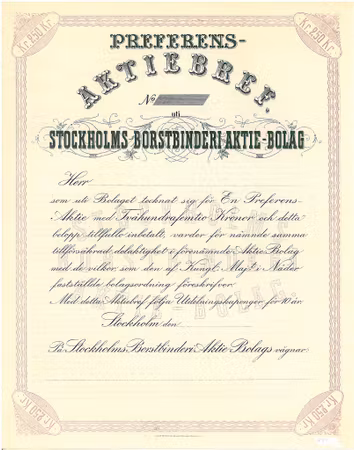 Kr. 250 Kr.
Kr. 250 Kr.
PREFERENS-
AKTIEBREF,
No
uti
STOCKHOLMS BORSTBINDERI AKTIE-BOLAG
Herr
som uti Bolaget tecknat sig för En Preferens-
Aktie med Tvåhundrafemtio Kronor och detta
belopp tillfullo inbetalt, varder för nämnde summa
tillförsäkrad delaktighet i förenämnde Aktie Bolag
med de vilkor som den af Kongl. Maj:t i Nåder
fastställde bolagsordning föreskrifver.
Med detta Aktiebref följa Utdelningskuponger för 10 år.
Stockholm den
På Stockholms Borstbinderi Aktie Bolags vägnar
Kr. 250 Kr.
Kr. 250 Kr.